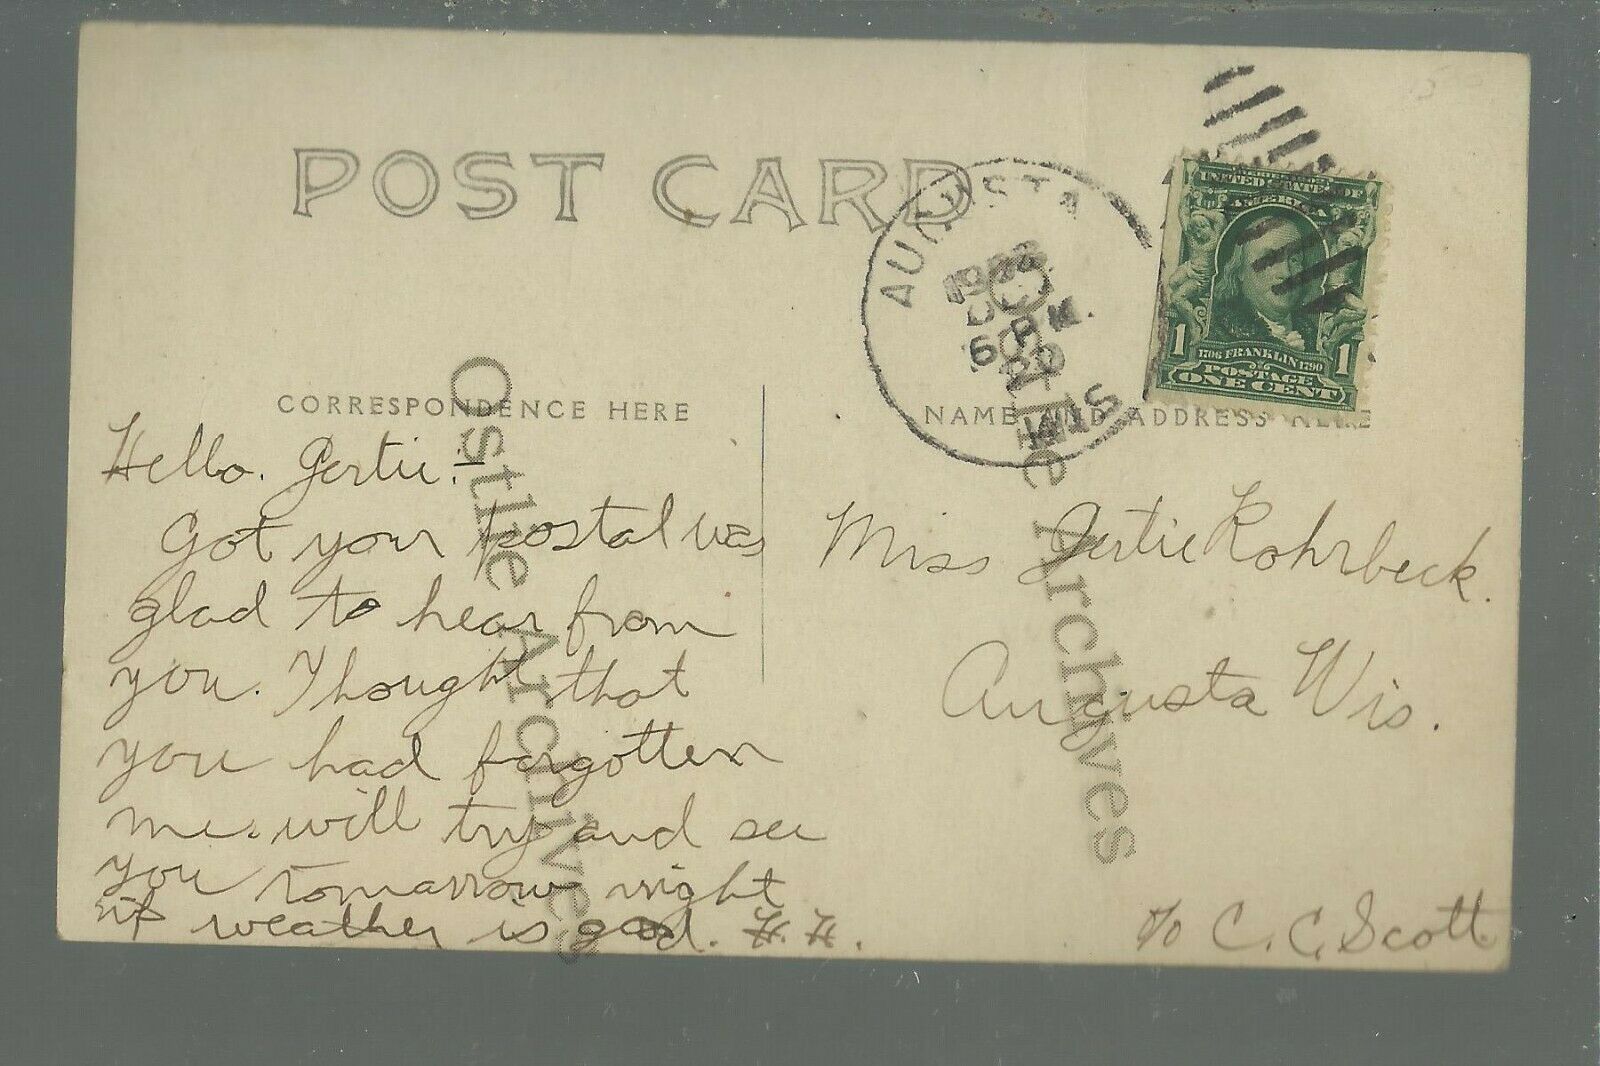 POST CARD
AUGUSTA
WIS.
UNITED STATES OF
AMERICA
1706 FRANKLIN 1790
POSTAGE
1 1
ONE CENT
CORRESPONDENCE HERE
NAME AND ADDRESS HERE
Hello. Gertie.-
Got your postal was
glad to hear from
you. Thought that
you had forgotten
me. will try and see
you tomarrow night
if weather is good. H. H.
Miss Gertie Rohrbeck.
Augusta Wis.
c/o C. C. Scott
Ostlie Archives
Ostlie Archives